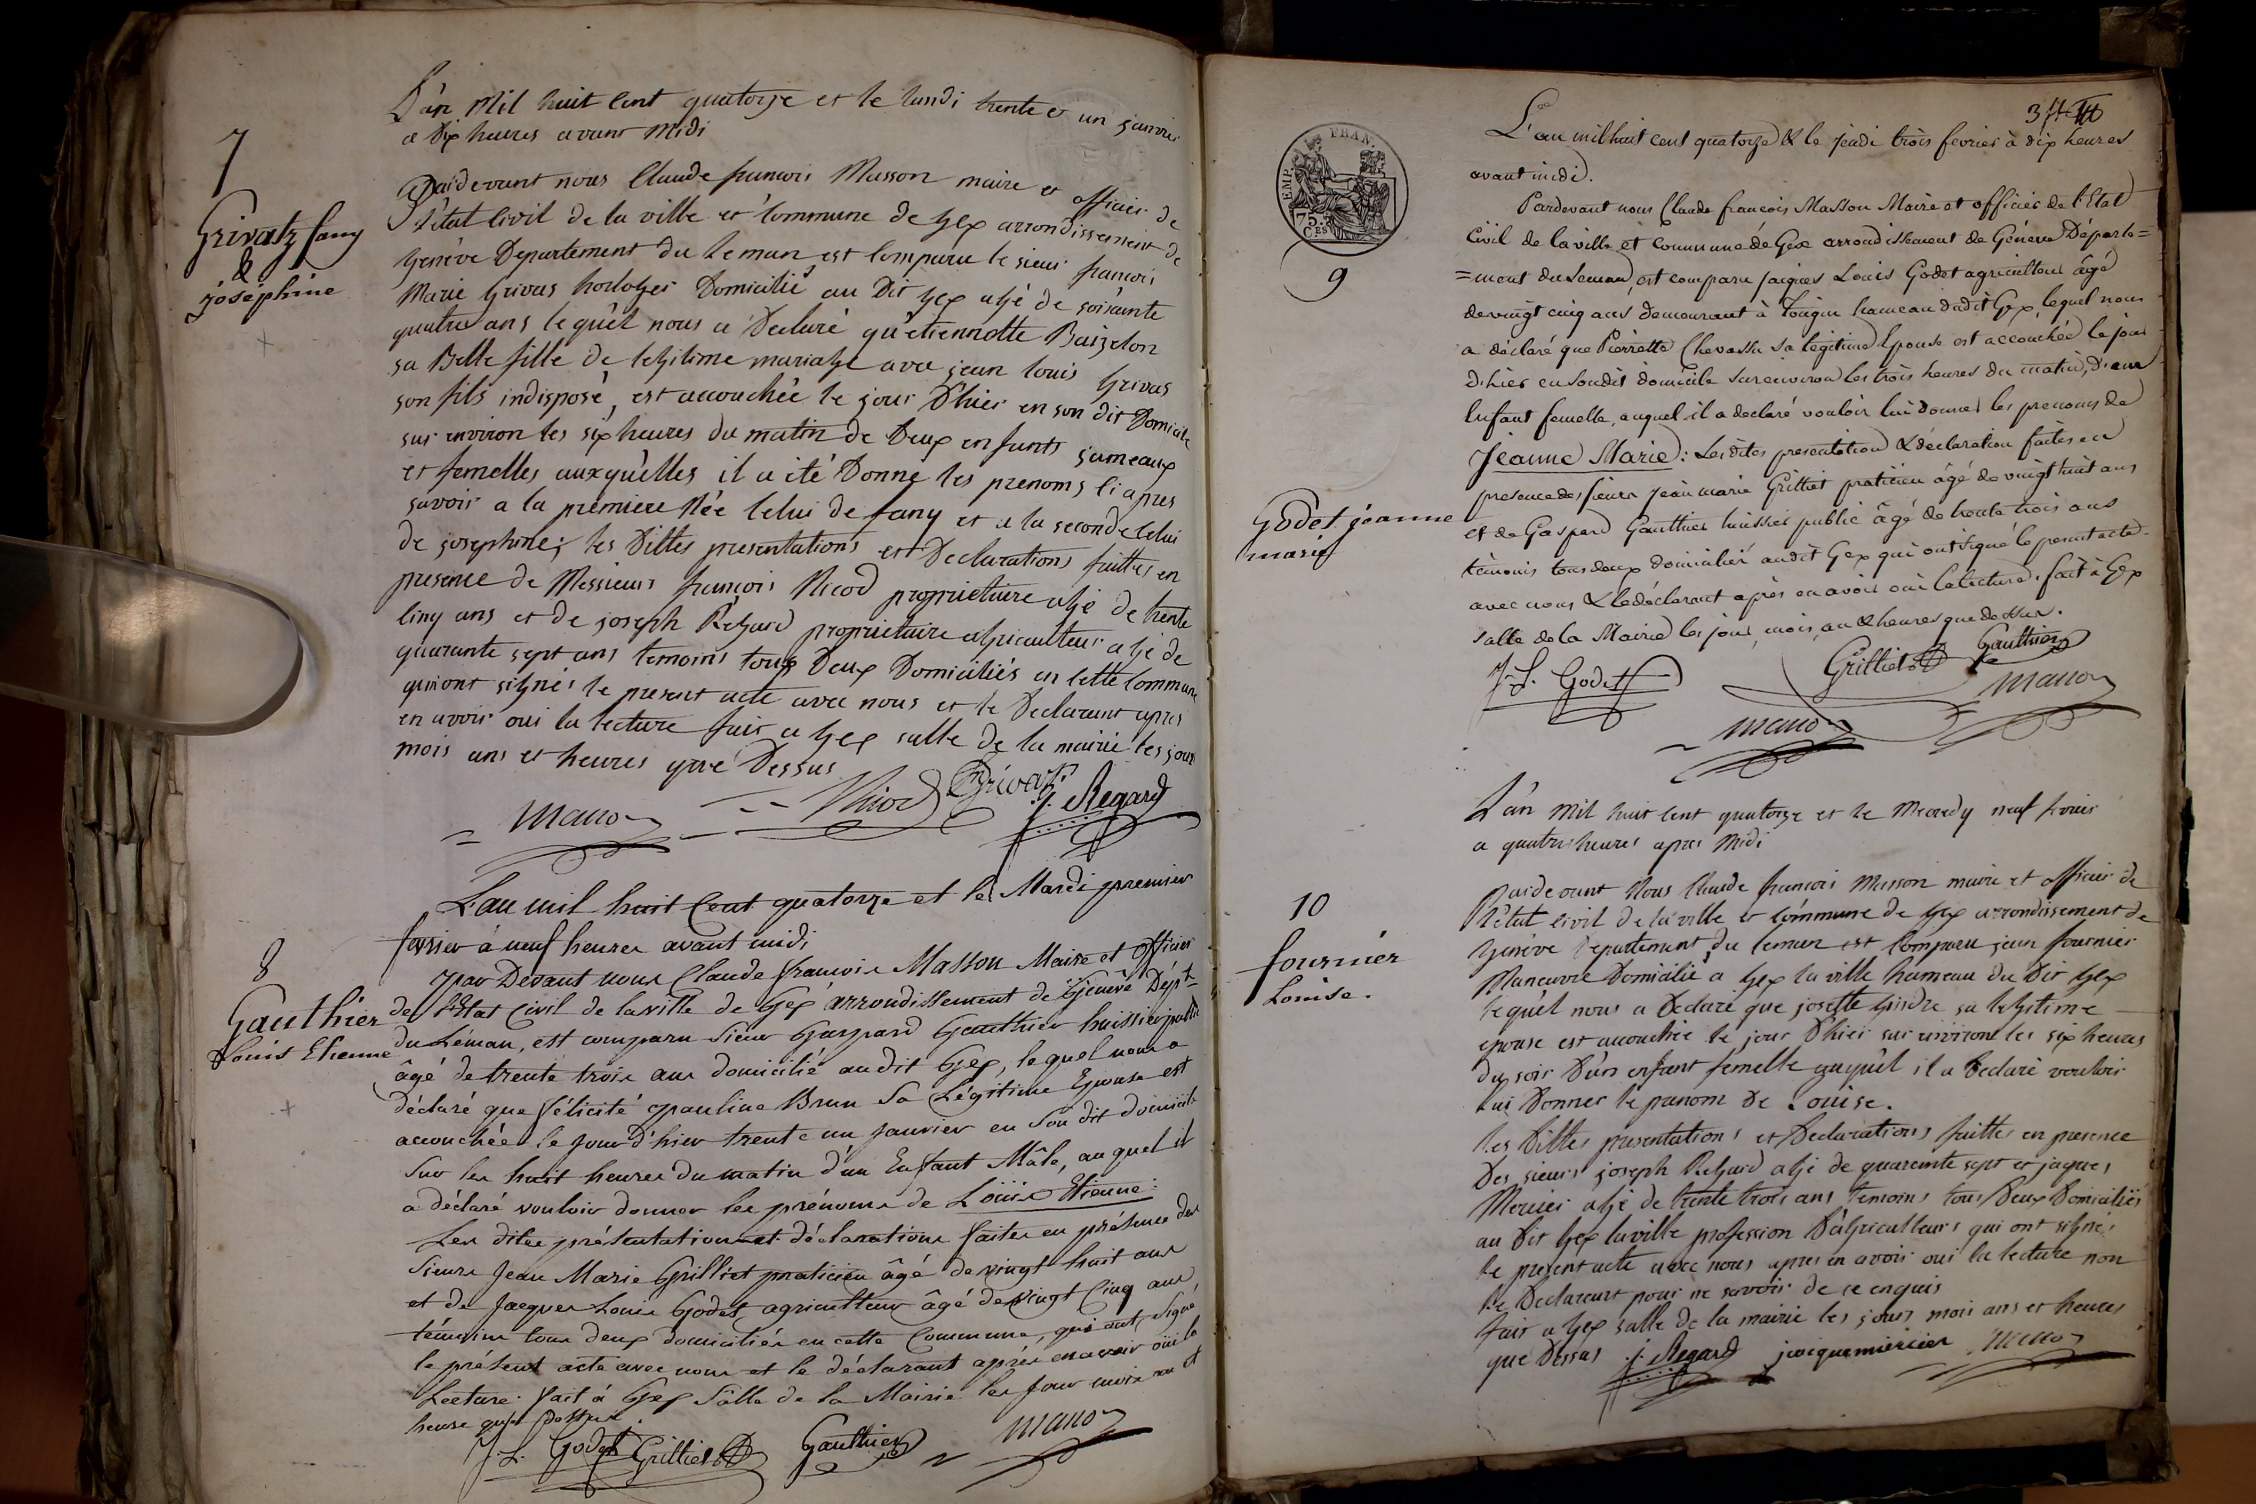 7
Grivatz fany
&
joséphine
L'an Mil huit Cent quatorze et le lundi trente et un janvier
a dix heures avant Midi
Pardevant nous Claude francois Masson maire et officier de
l'état Civil de la ville et Commune de Gex arrondissement de
Genève Departement du Leman est Comparu le sieur francois
Marie Grivas horloger Domicilié au Dit Gex agé de soixante
quatre ans lequêl nous a Declaré qu'etiennette
sa Belle fille de legitime mariage avec jean louis Grivas
son fils indisposé, est accouchée le jour D'hier en son dit Domicile
sur environ les six heures du matin de Deux enfants jumeaux
et femelles auxquelles il a été Donné les prenoms Ci apres
savoir a la premiere Née Celui de fany et a la seconde Celui
de josephine; les Dittes presentations et Declarations faittes en
presence de Messieurs françois Nicod propriétaire agé de trente
Cinq ans et de joseph Regard propriétaire agriculteur agé de
quarante sept ans temoins tous Deux Domiciliés en Cette Commune
qui ont signés le present acte avec nous et le Declarant apres
en avoir oui la lecture fait a Gex salle de la mairie les jour
mois ans et heures que Dessus
Masson Nicod Grivaz J. Regard
8
Gauthier
Louis Etienne
L'an mil huit Cent quatorze et le Mardi premier
fevrier à neuf heures avant midi
par Devant nous Claude françois Masson Maire et officier
de l'Etat Civil de la ville de Gex arrondissement de Genève Dépt
du Léman, est comparu Sieur Gaspard Gauthier huissier public
âgé de trente trois ans domicilié au dit Gex, lequel nous a
déclaré que félicité pauline Brun Sa Légitime Epouse est
accouchée le jour d'hier trente un janvier en Son dit domicile
Sur les huit heures du matin d'un Enfant Mâle, auquel il
a déclaré vouloir donner les prénoms de Loüis Etienne:
Les dites présentation et déclarations faites en présence des
Sieurs Jean Marie Grilliet praticien âgé de vingt huit ans
et de Jacques Louis Godet, agriculteur âgé de vingt Cinq ans,
témoins tous deux domiciliés en cette Commune, qui ont Signé
le présent acte avec nous et le déclarant après en avoir oüi la
Lecture. fait à Gex Salle de la Mairie les jour mois an et
heure que dessus.
J. L. Godet Grilliet Gauthier Masson
EMP. FRAN.
75
CES
9
Godet jeanne
marie
L'an mil huit cent quatorze & le jeudi trois fevrier à dix heures
avant midi.
Pardevant nous Claude françois Masson Maire et officier de l'Etat
Civil de la ville et Commune de Gex arrondissement de Genève Départe=
=ment du Leman, est comparu jacques Louis Godet agriculteur âgé
de vingt cinq ans demeurant à Tougin hameau dudit Gex, lequel nous
a déclaré que Pierrette Chevassu sa légitime Epouse est accouchée le jour
d'hier en Sondit domicile sur environ les trois heures du matin, d'un
Enfant femelle, auquel il a declaré vouloir lui donner les prenoms de
Jeanne Marie: Les dites presentation & déclaration faites en
presence des Sieurs Jean marie Grilliet praticien âgé de vingt huit ans
et de Gaspard Gauthier huissier public âgé de trente trois ans
témoins tous deux domiciliés audit Gex qui ont signé le present acte
avec nous & le déclarant après en avoir oui la lecture. fait à Gex
salle de la Mairie les jour, mois, an & heures que dessus.
J. L. Godet Grilliet Gauthier
Masson Masson
10
fournier
Louise.
L'an Mil huit Cent quatorze et le Mecredy neuf fevrier
a quatre heures apres Midi
Pardevant Nous Claude françois Masson maire et officier de
l'état Civil de la ville et Commune de Gex arrondissement de
Genève Departement du Leman est Comparu jean fournier
Maneuvre Domicilié a Gex la ville hameau du Dit Gex
lequêl nous a Declaré que josette Gindre sa legitime
epouse est accouchée le jour D'hier sur environ les six heures
du soir D'un enfant femelle auquêl il a Declaré vouloir
lui Donner le prenom De Louise.
les Dittes presentations et Declarations faittes en presence
Des sieurs joseph Regard agé de quarente sept et jaques
Mercier agé de trente trois ans temoins tous Deux Domiciliés
au Dit Gex la ville profession D'agriculteurs qui ont signés
le present acte avec nous apres en avoir oui la lecture non
le Declarant pour ne savoir de ce enquis
fait a Gex salle de la mairie les jours mois ans et heures
que Dessus J. Regard jacque mercier Masson